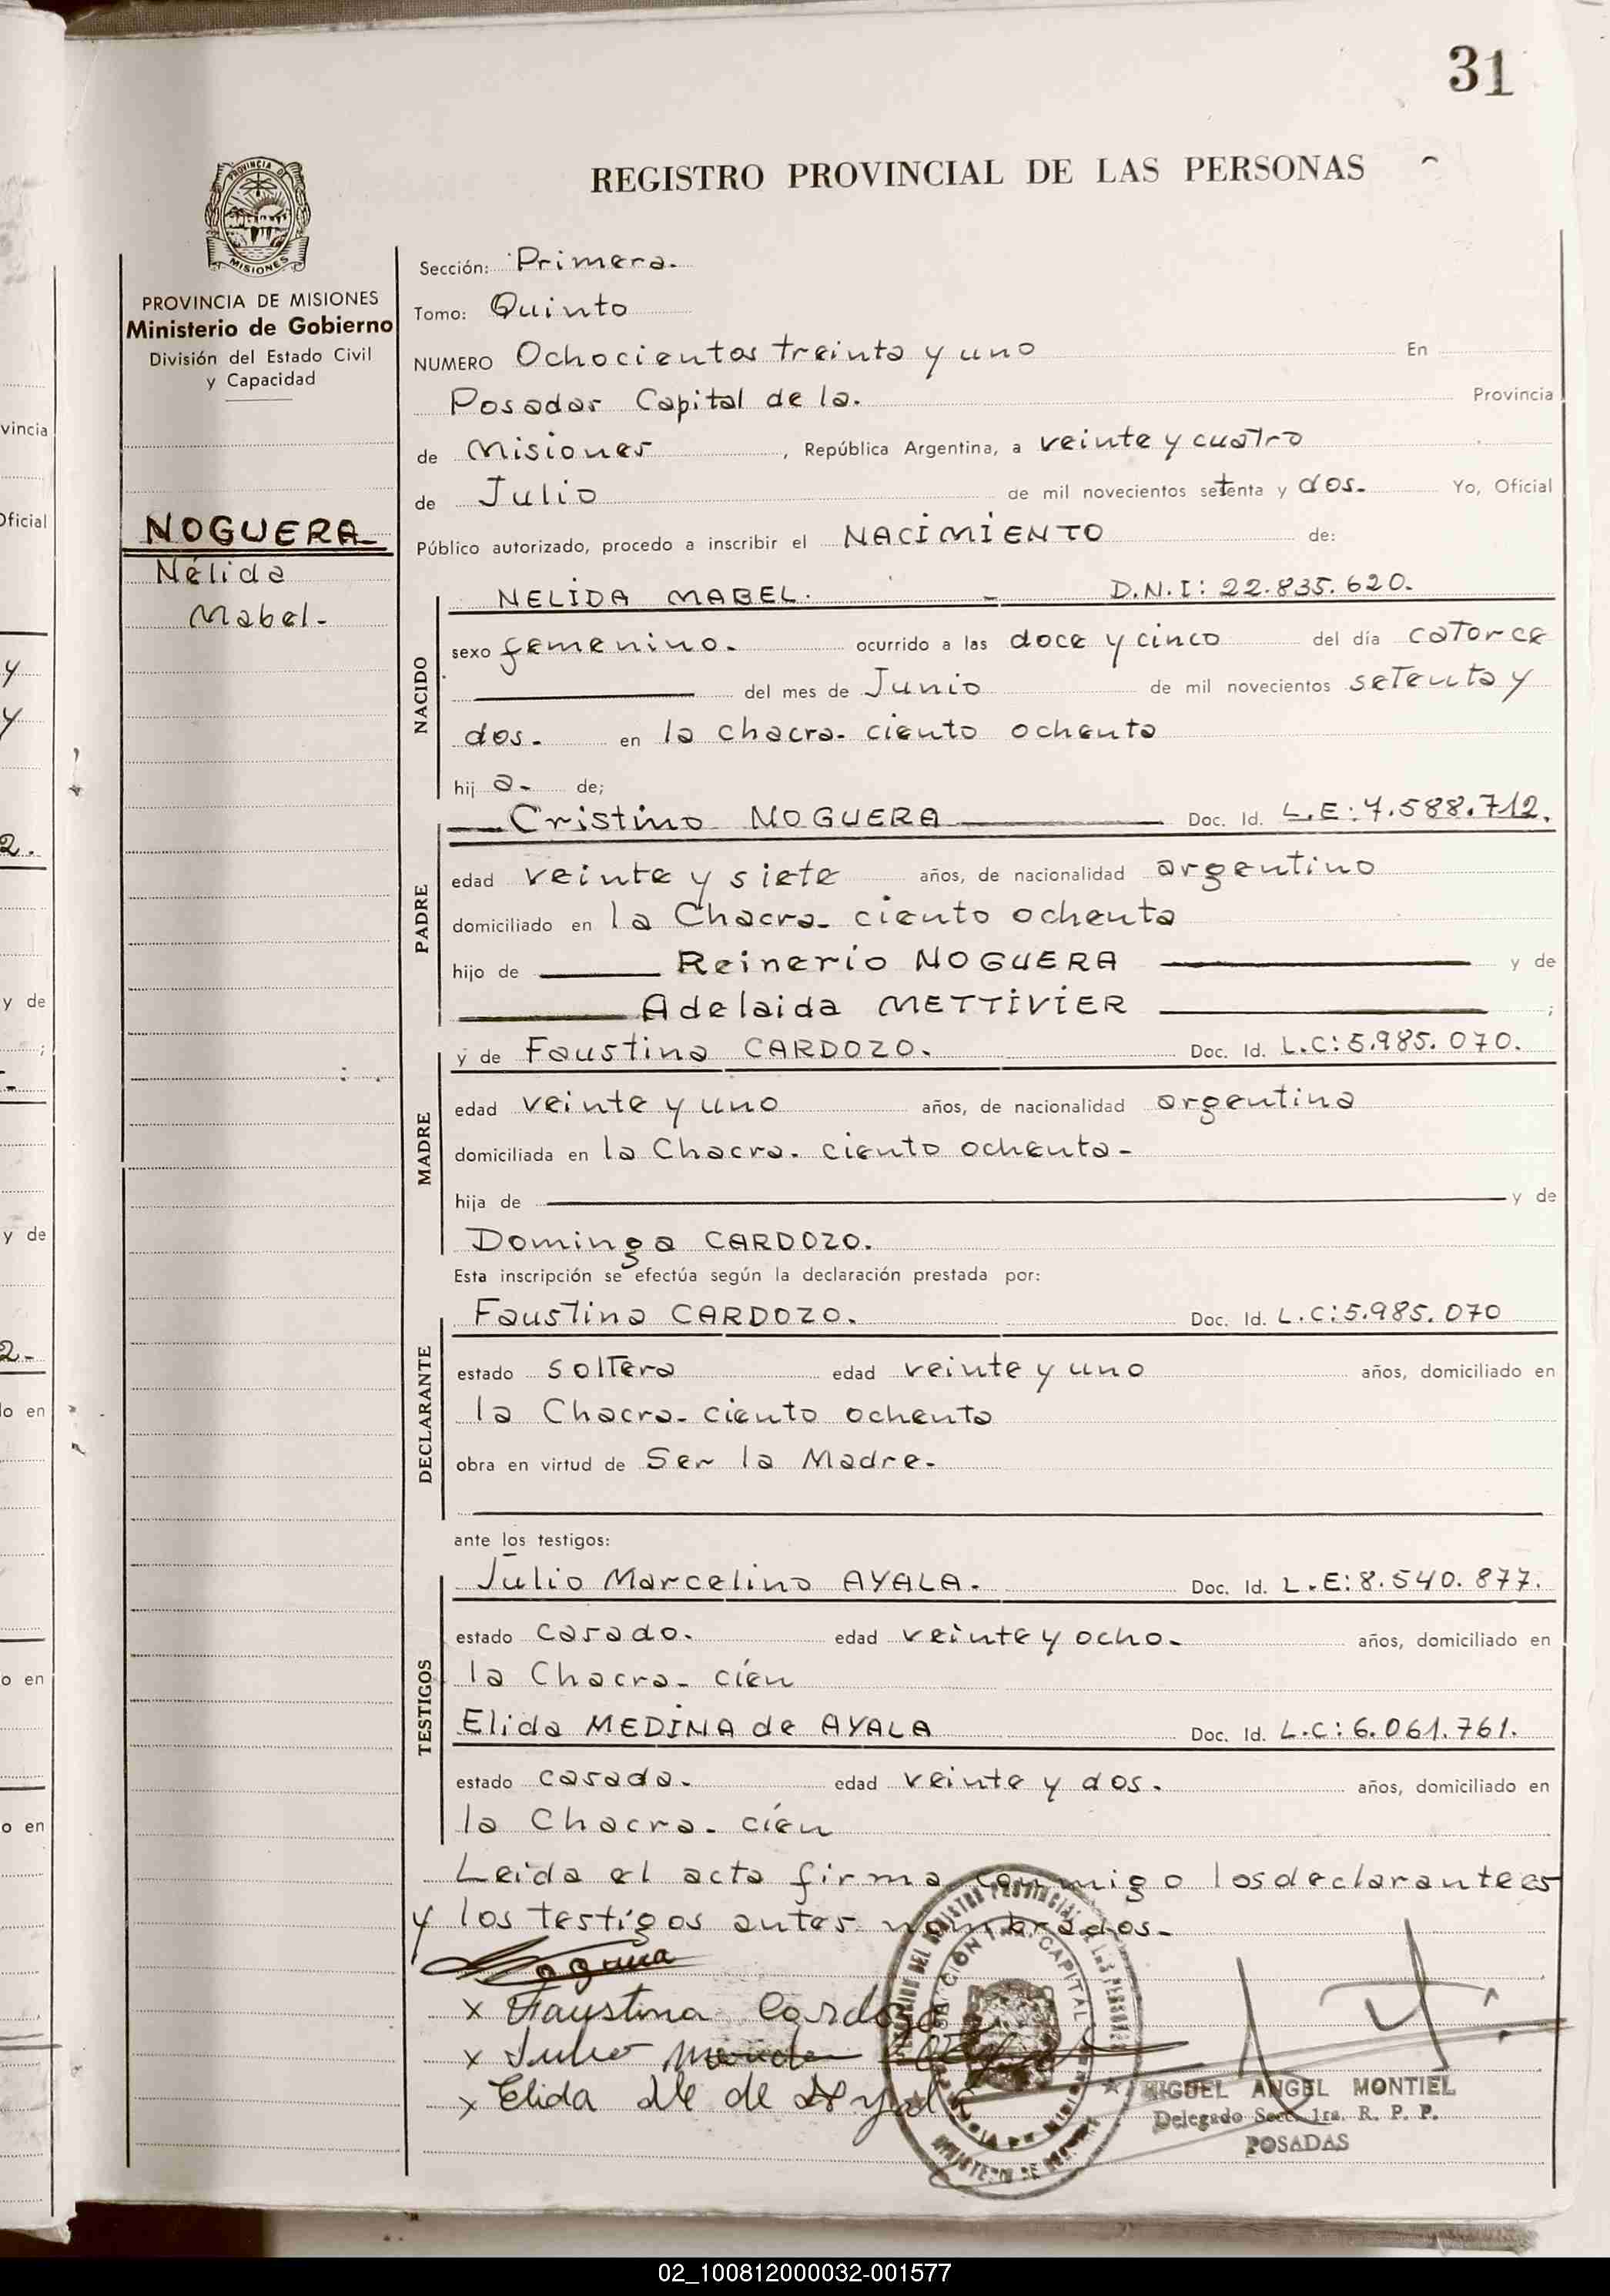 31
REGISTRO PROVINCIAL DE LAS PERSONAS
PROVINCIA DE
MISIONES
PROVINCIA DE MISIONES
Ministerio de Gobierno
División del Estado Civil
y Capacidad
NOGUERA
Nélida
Mabel.-
Sección: Primera.
Tomo: Quinto
NUMERO Ochocientos treinta y uno En
Posadas Capital de la. Provincia
de Misiones, República Argentina, a veinte y cuatro
de Julio de mil novecientos setenta y dos.- Yo, Oficial
Público autorizado, procedo a inscribir el NACIMIENTO de:
NELIDA MABEL. - D.N.I: 22.835.620.
NACIDO
sexo femenino.- ocurrido a las doce y cinco del día catorce
del mes de Junio de mil novecientos setenta y
dos.- en la chacra- ciento ochenta
hij a.- de;
Cristino NOGUERA Doc. Id. L.E:7.588.712.
PADRE
edad veinte y siete años, de nacionalidad argentino
domiciliado en la Chacra- ciento ochenta
hijo de Reinerio NOGUERA y de
Adelaida METTIVIER ;
MADRE
y de Faustina CARDOZO. Doc. Id. L.C:5.985.070.
edad veinte y uno años, de nacionalidad argentina
domiciliada en la Chacra. ciento ochenta-
hija de y de
Dominga CARDOZO.
Esta inscripción se efectúa según la declaración prestada por:
DECLARANTE
Faustina CARDOZO. Doc. Id. L.C:5.985.070
estado soltera edad veinte y uno años, domiciliado en
la Chacra- ciento ochenta
obra en virtud de Ser la Madre.-
ante los testigos:
TESTIGOS
Julio Marcelino AYALA.- Doc. Id. L.E:8.540.877.
estado casado. edad veinte y ocho.- años, domiciliado en
la Chacra- cién
Elida MEDINA de AYALA Doc. Id. L.C:6.061.761.
estado casada.- edad veinte y dos. años, domiciliado en
la Chacra- cién
Leida el acta firma conmigo los declarantees
y los testigos antes nombrados.-
Noguera
x Faustina Cardozo
x Julio
x Elida M de Ayala
MIGUEL ANGEL MONTIEL
Delegado Secc. 1ra. R. P. P.
POSADAS
02_100812000032-001577